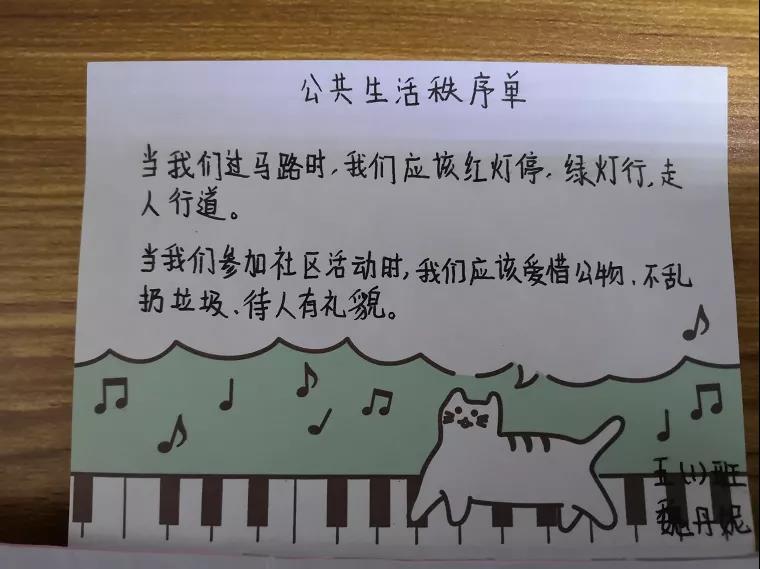 公共生活秩序单
当我们过马路时,我们应该红灯停,绿灯行,走
人行道。
当我们参加社区活动时,我们应该爱惜公物、不乱
扔垃圾、待人有礼貌。
五(1)班
魏丹妮